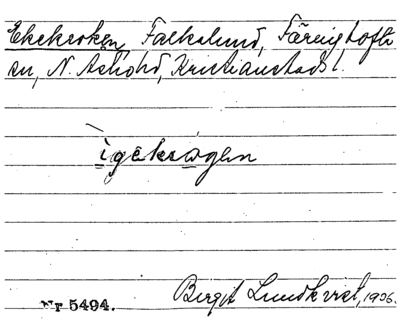 Ekekroken, Falkalund, Färingtofta
sn, N. Åsbohd, Kristianstads l.
ìgēkrogen
Nr 5494.
Birgit Lundkvist, 1936.